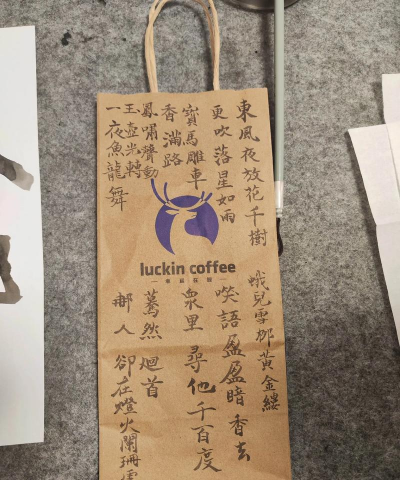 東風夜放花千樹
更吹落星如雨
寶馬雕車
香滿路
鳳嘯聲動
玉壺光轉
一夜魚龍舞
luckin coffee
蛾兒雪柳黃金縷
笑語盈盈暗香去
衆里尋他千百度
驀然迴首
那人卻在燈火闌珊